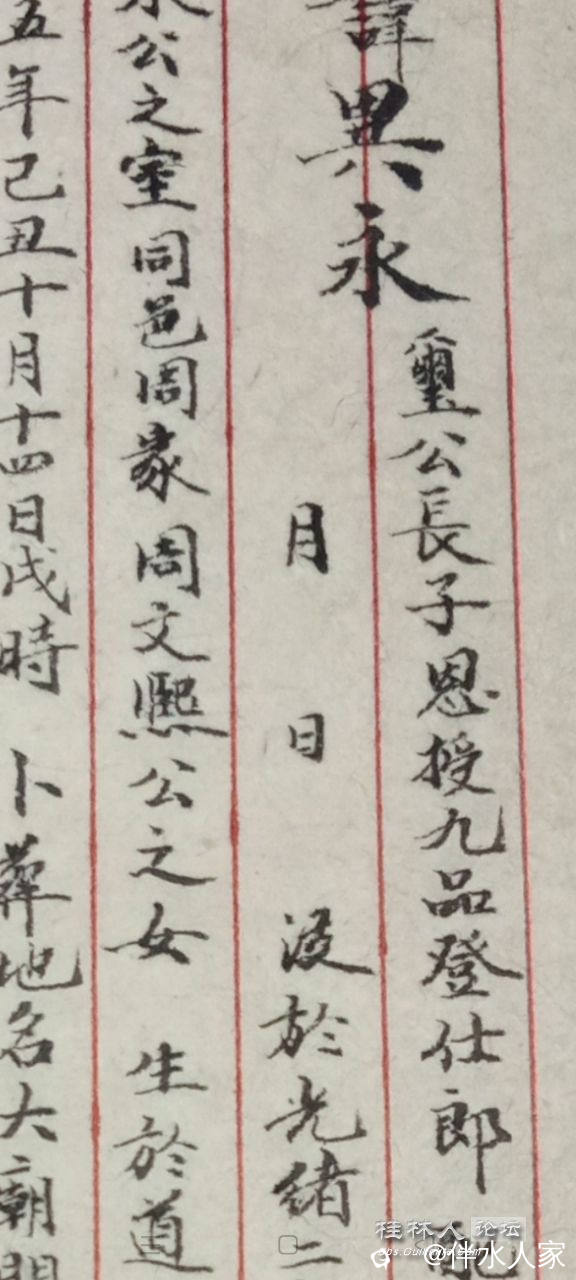 諱異永
璽公長子恩授九品登仕郎
月 日 没於光緒二
永公之室同邑周家周文熙公之女 生於道
五年己丑十月十四日戌時 卜葬地名大廟
桂林人论坛
@伴水人家